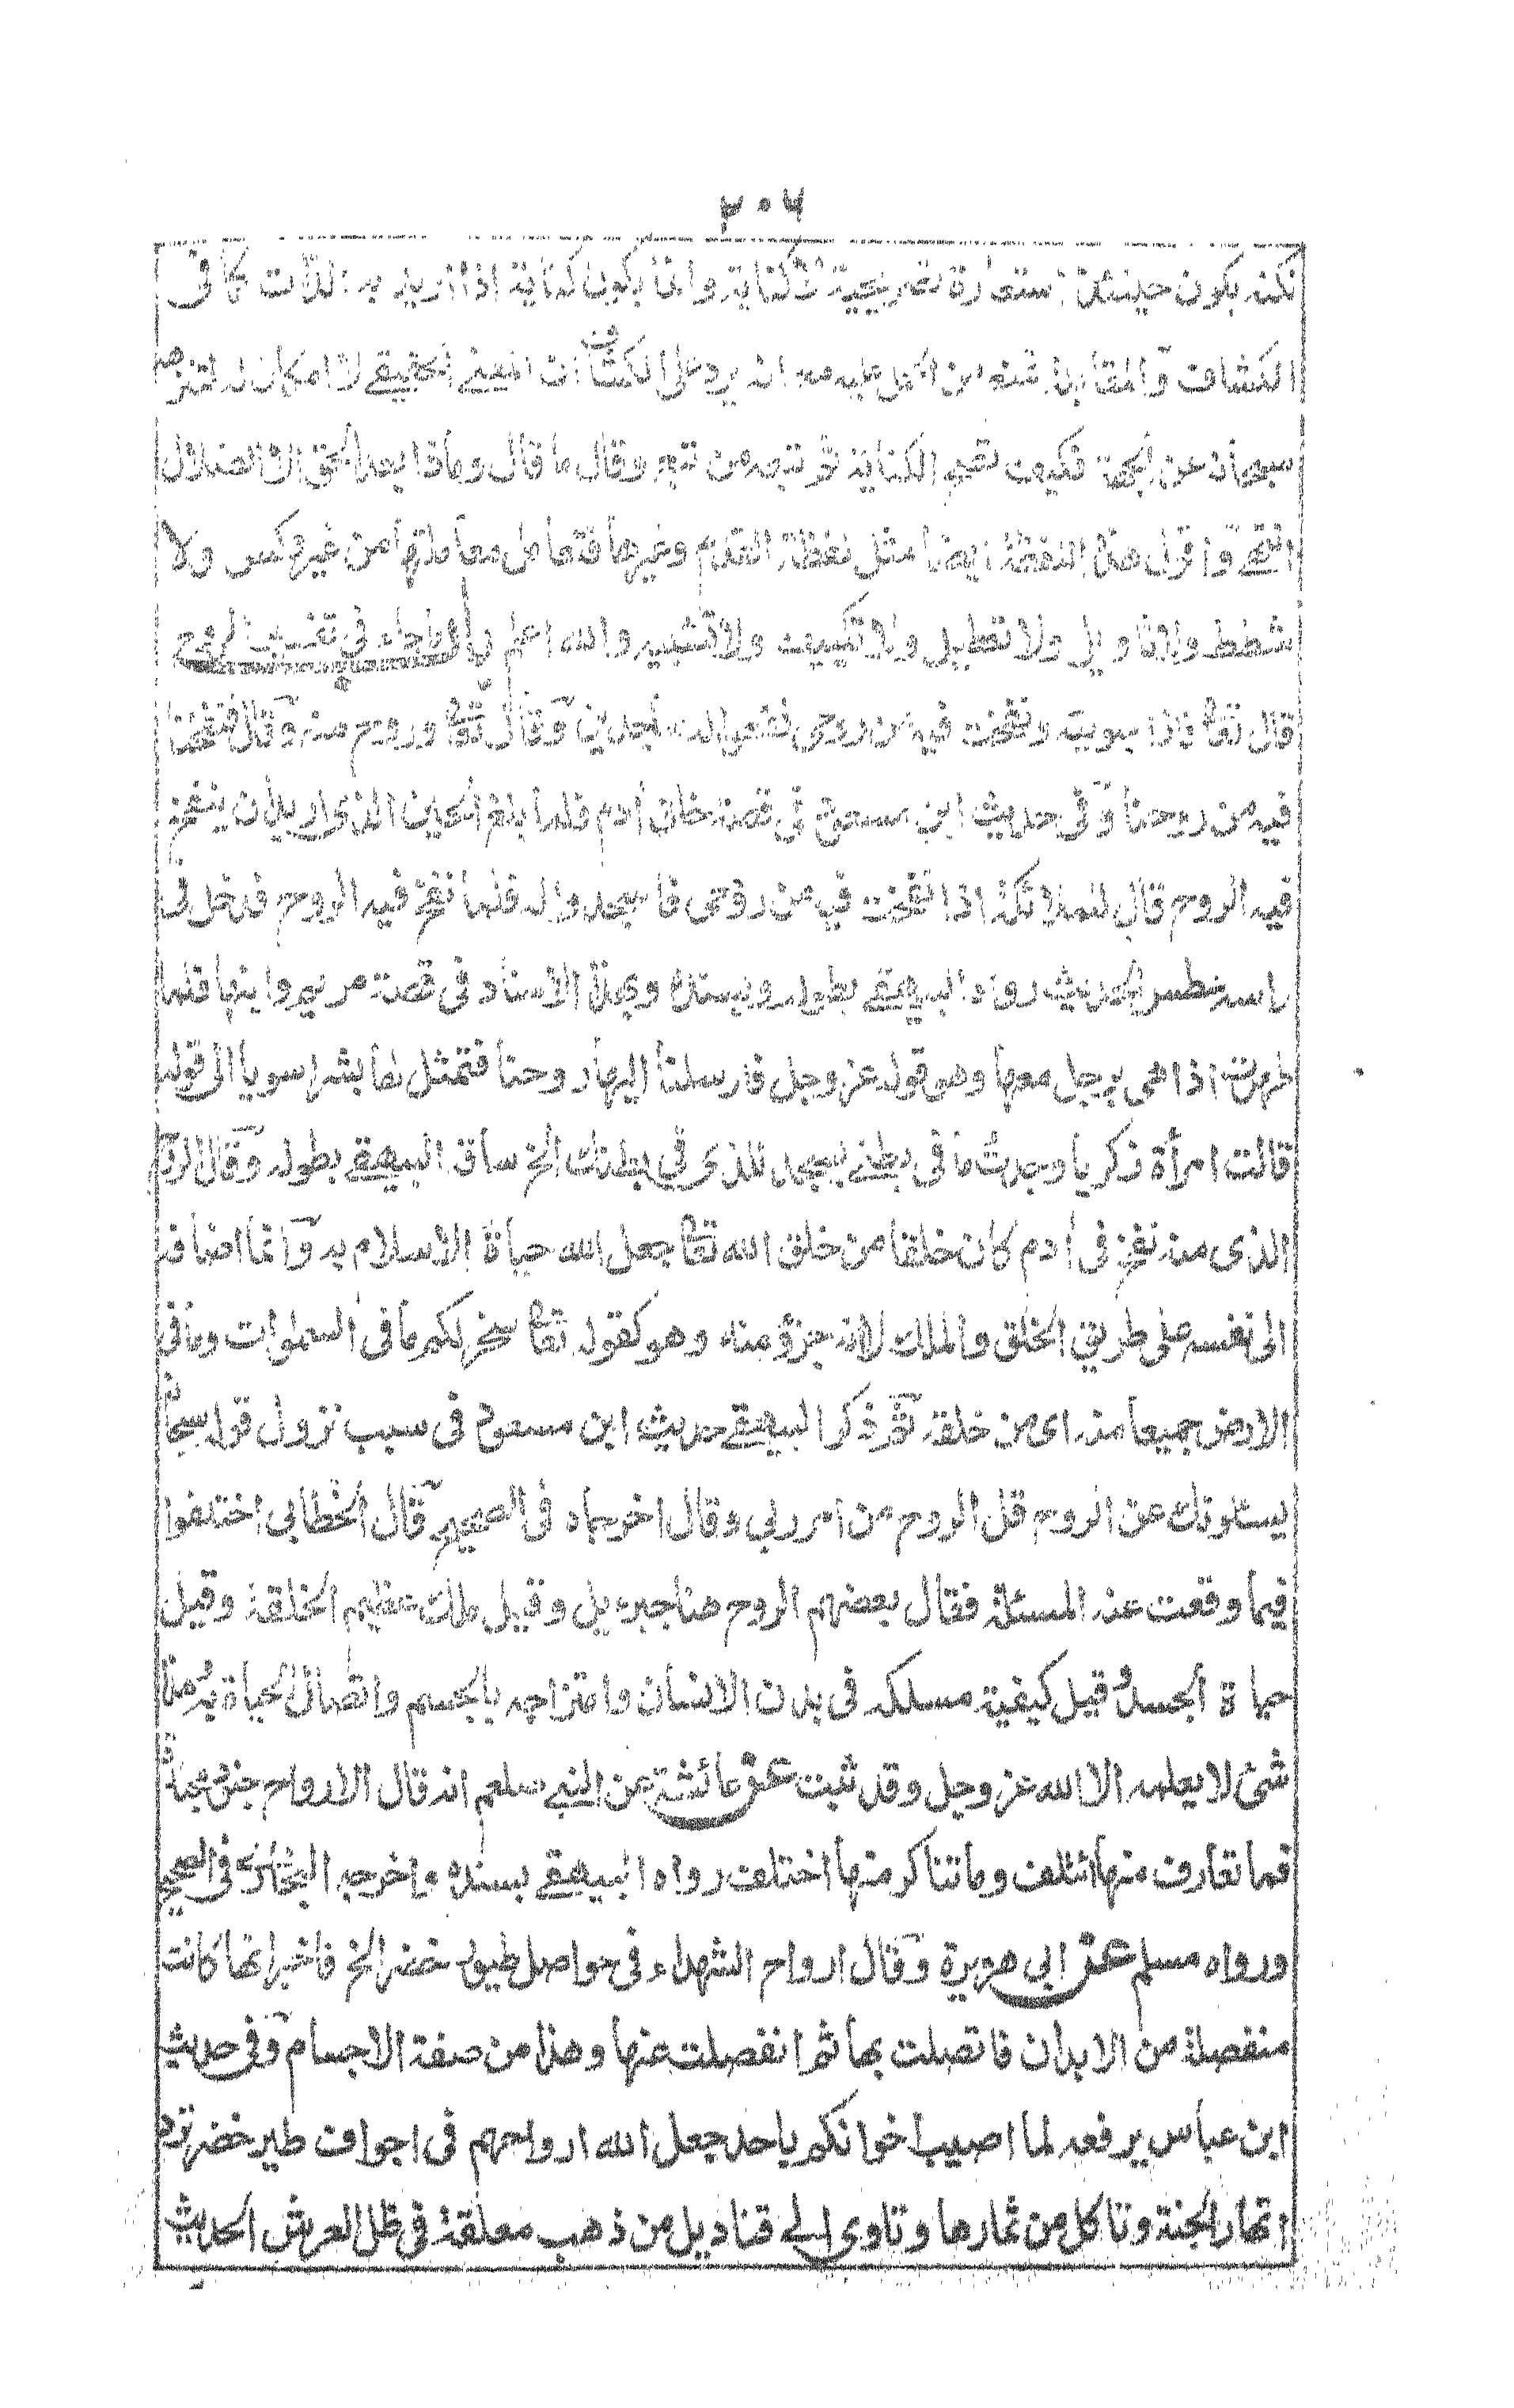 ٢٠٦
لكنه يكون حينئذ استعارة تصريحية لا كناية وانما يكون كناية اذا اريد به الذات كما في
الكشاف والمقابلة عليه انه يرد على الكشاف ان المعنى الحقيقي لا امكان له لتنزهه
سبحانه عن الجهة فكيف تصح الكناية ثم تبعه من تبعه وقال ما قال وماذا بعد الحق الا الضلال
انتهى واقول هذه اللفظة ايضا مثل لفظة القدم وغيرها فتعامل معاملتها من غير وكس ولا
شطط ولا تاويل ولا تعطيل ولا تكييف ولا تشبيه والله اعلم باب ما جاء في تفسير الروح
قال تعا فاذا سويته ونفخت فيه من روحي فقعوا له ساجدين وقال تعا وروح منه وقال فنفخنا
فيه من روحنا وفي حديث ابن مسعود في قصة خلق آدم فلما بلغ الحين الذي اريد ان ينفخ
فيه الروح قال للملائكة اذا نفخت فيه من روحي فاسجدوا له فلما نفخ فيه الروح فدخل في
راسه عطس الحديث رواه البيهقي بطوله وبسنده وبهذا الاسناد في قصة مريم وابنها فلما
طهرت اذا هي برجل معها وهو قوله عز وجل فارسلنا اليها روحنا فتمثل لها بشرا سويا الى قوله
قالت امرأة زكريا وجدت ما في بطني يسجد للذي في بطنك الخ ساق البيهقي بطوله وقال الروح
الذي منه نفخ في آدم كان خلقا من خلق الله تعا جعل الله حياة الاسلام به وانما اضافه
الى نفسه على طريق الخلق والملك لا انه جزؤ منه وهو كقوله تعا سخر لكم ما في السموات وما في
الارض جميعا منه اى من خلقه ثم ذكر البيهقي حديث ابن مسعود في سبب نزول قوله سبحانه
يسئلونك عن الروح قل الروح من امر ربي وقال اخرجاه في الصحيح قال الخطابي اختلفوا
فيما وقعت عنه المسئلة فقال بعضهم الروح هنا جبرءيل وقيل ملك عظيم الخلقة وقيل
حياة الجسد وقيل كيفية مسلكه في بدن الانسان وامتزاجه بالجسم واتصال الحياة به وهذا
شئ لا يعلمه الا الله عز وجل وقد ثبت عن عائشة عن النبي صلعم انه قال الارواح جنود مجندة
فما تعارف منها ائتلف وما تناكر منها اختلف رواه البيهقي بسنده واخرجه البخاري في الصحيح
ورواه مسلم عن ابي هريرة وقال ارواح الشهداء في حواصل طيور خضر الخ فاخبر انها كانت
منفصلة من الابدان فاتصلت بها ثم انفصلت عنها وهذا من صفة الاجسام وفي حديث
ابن عباس يرفعه لما اصيب اخوانكم باحد جعل الله ارواحهم في اجواف طير خضر ترد
انهار الجنة وتاكل من ثمارها وتاوى الى قناديل من ذهب معلقة في ظل العرش الحديث